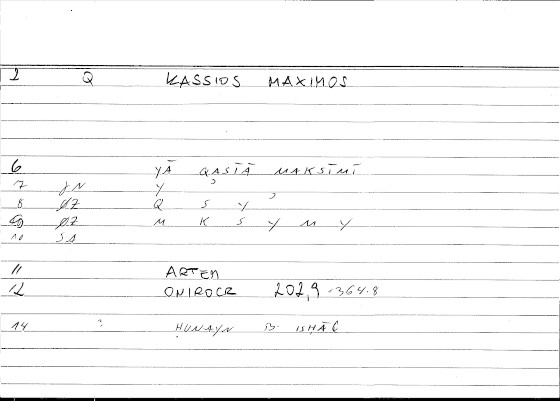 1 Q KASSIOS MAXIMOS
6 YĀ QASĪĀ MAKSĪMĪ
7 JN Y ʾ
8 ØZ Q S Y ʾ
9 ØZ M K S Y M Y
10 SA
11 ARTEM
12 ONIROCR 202,9 - 364.8
14 : ḤUNAYN B. ISḤĀĊ